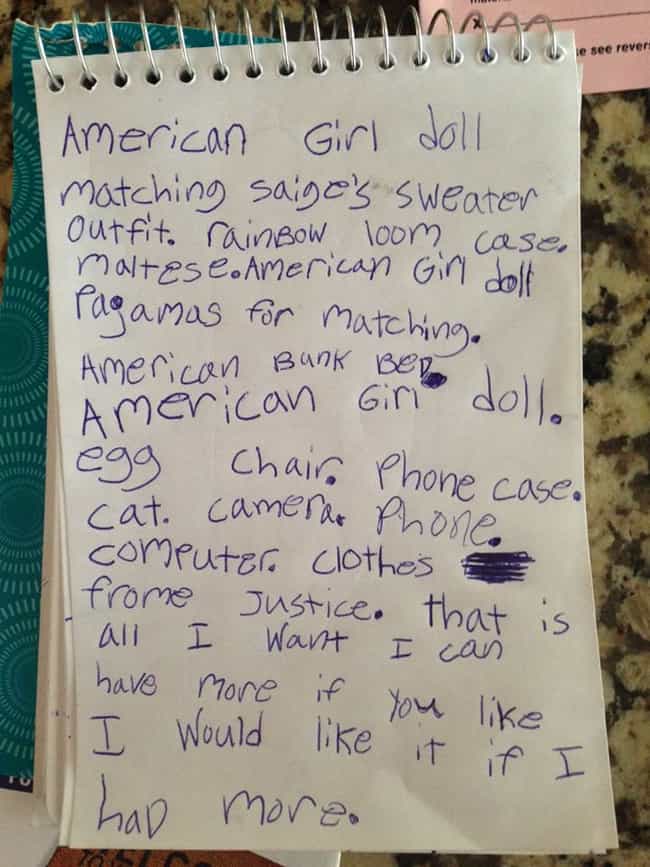 American Girl doll
matching saige's sweater
outfit. rainbow loom case.
maltese. American Girl doll
Pagamas for matching.
American Bunk Bed.
American Girl doll.
egg chair. Phone case.
cat. camera. Phone.
computer. clothes
frome Justice. that is
all I want I can
have more if you like
I would like it if I
had more.
e see revers